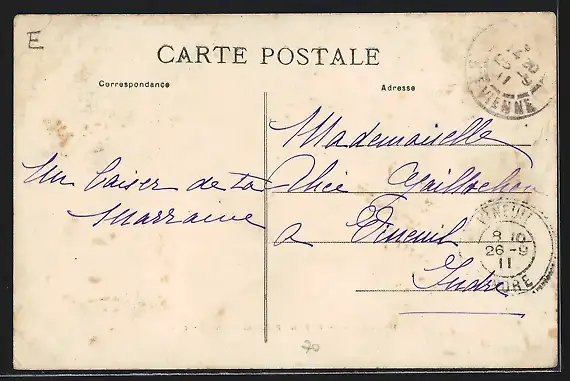 E
CARTE POSTALE
Correspondance
Adresse
VIENNE
Mademoiselle
Alice
Un baiser de ta
Marraine
à Vineuil
8 10
26 - 9
11
INDRE
Indre
70